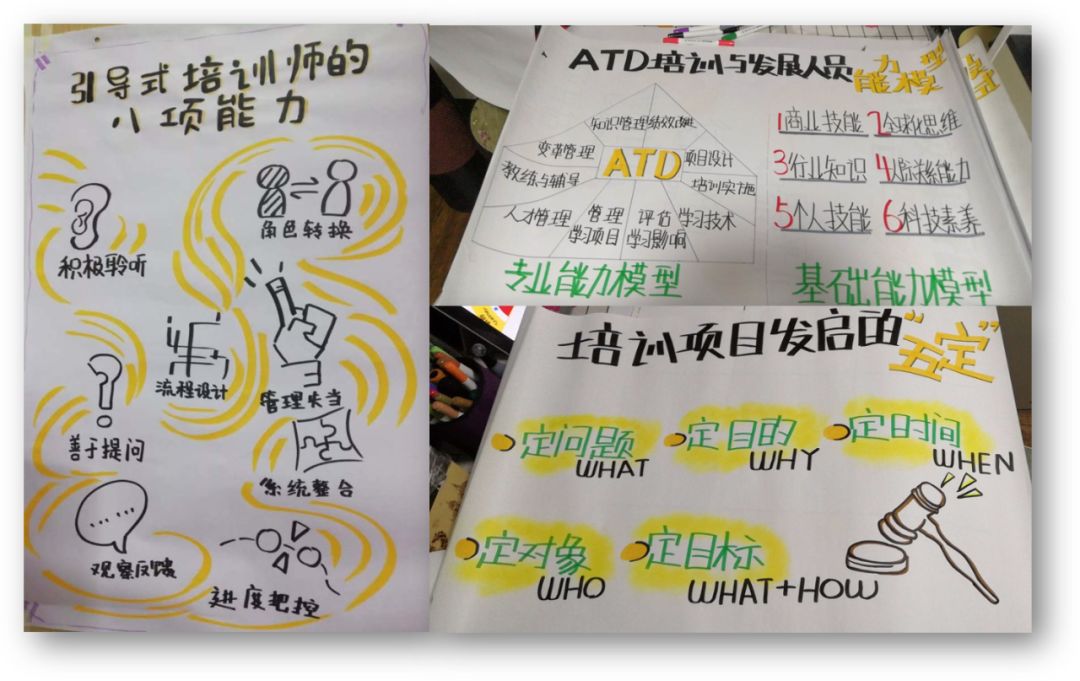 引导式培训师的
八项能力
积极聆听
角色转换
流程设计
管理失当
善于提问
系统整合
观察反馈
进度把控
ATD培训与发展人员能力模型
知识管理 绩效改进
变革管理
ATD
项目设计
教练与辅导
培训实施
人才管理
管理
学习项目
评估
学习影响
学习技术
专业能力模型
1商业技能 2全球化思维
3行业知识 4人际关系能力
5个人技能 6科技素养
基础能力模型
培训项目发启的"五定"
定问题
WHAT
定目的
WHY
定时间
WHEN
定对象
WHO
定目标
WHAT+HOW